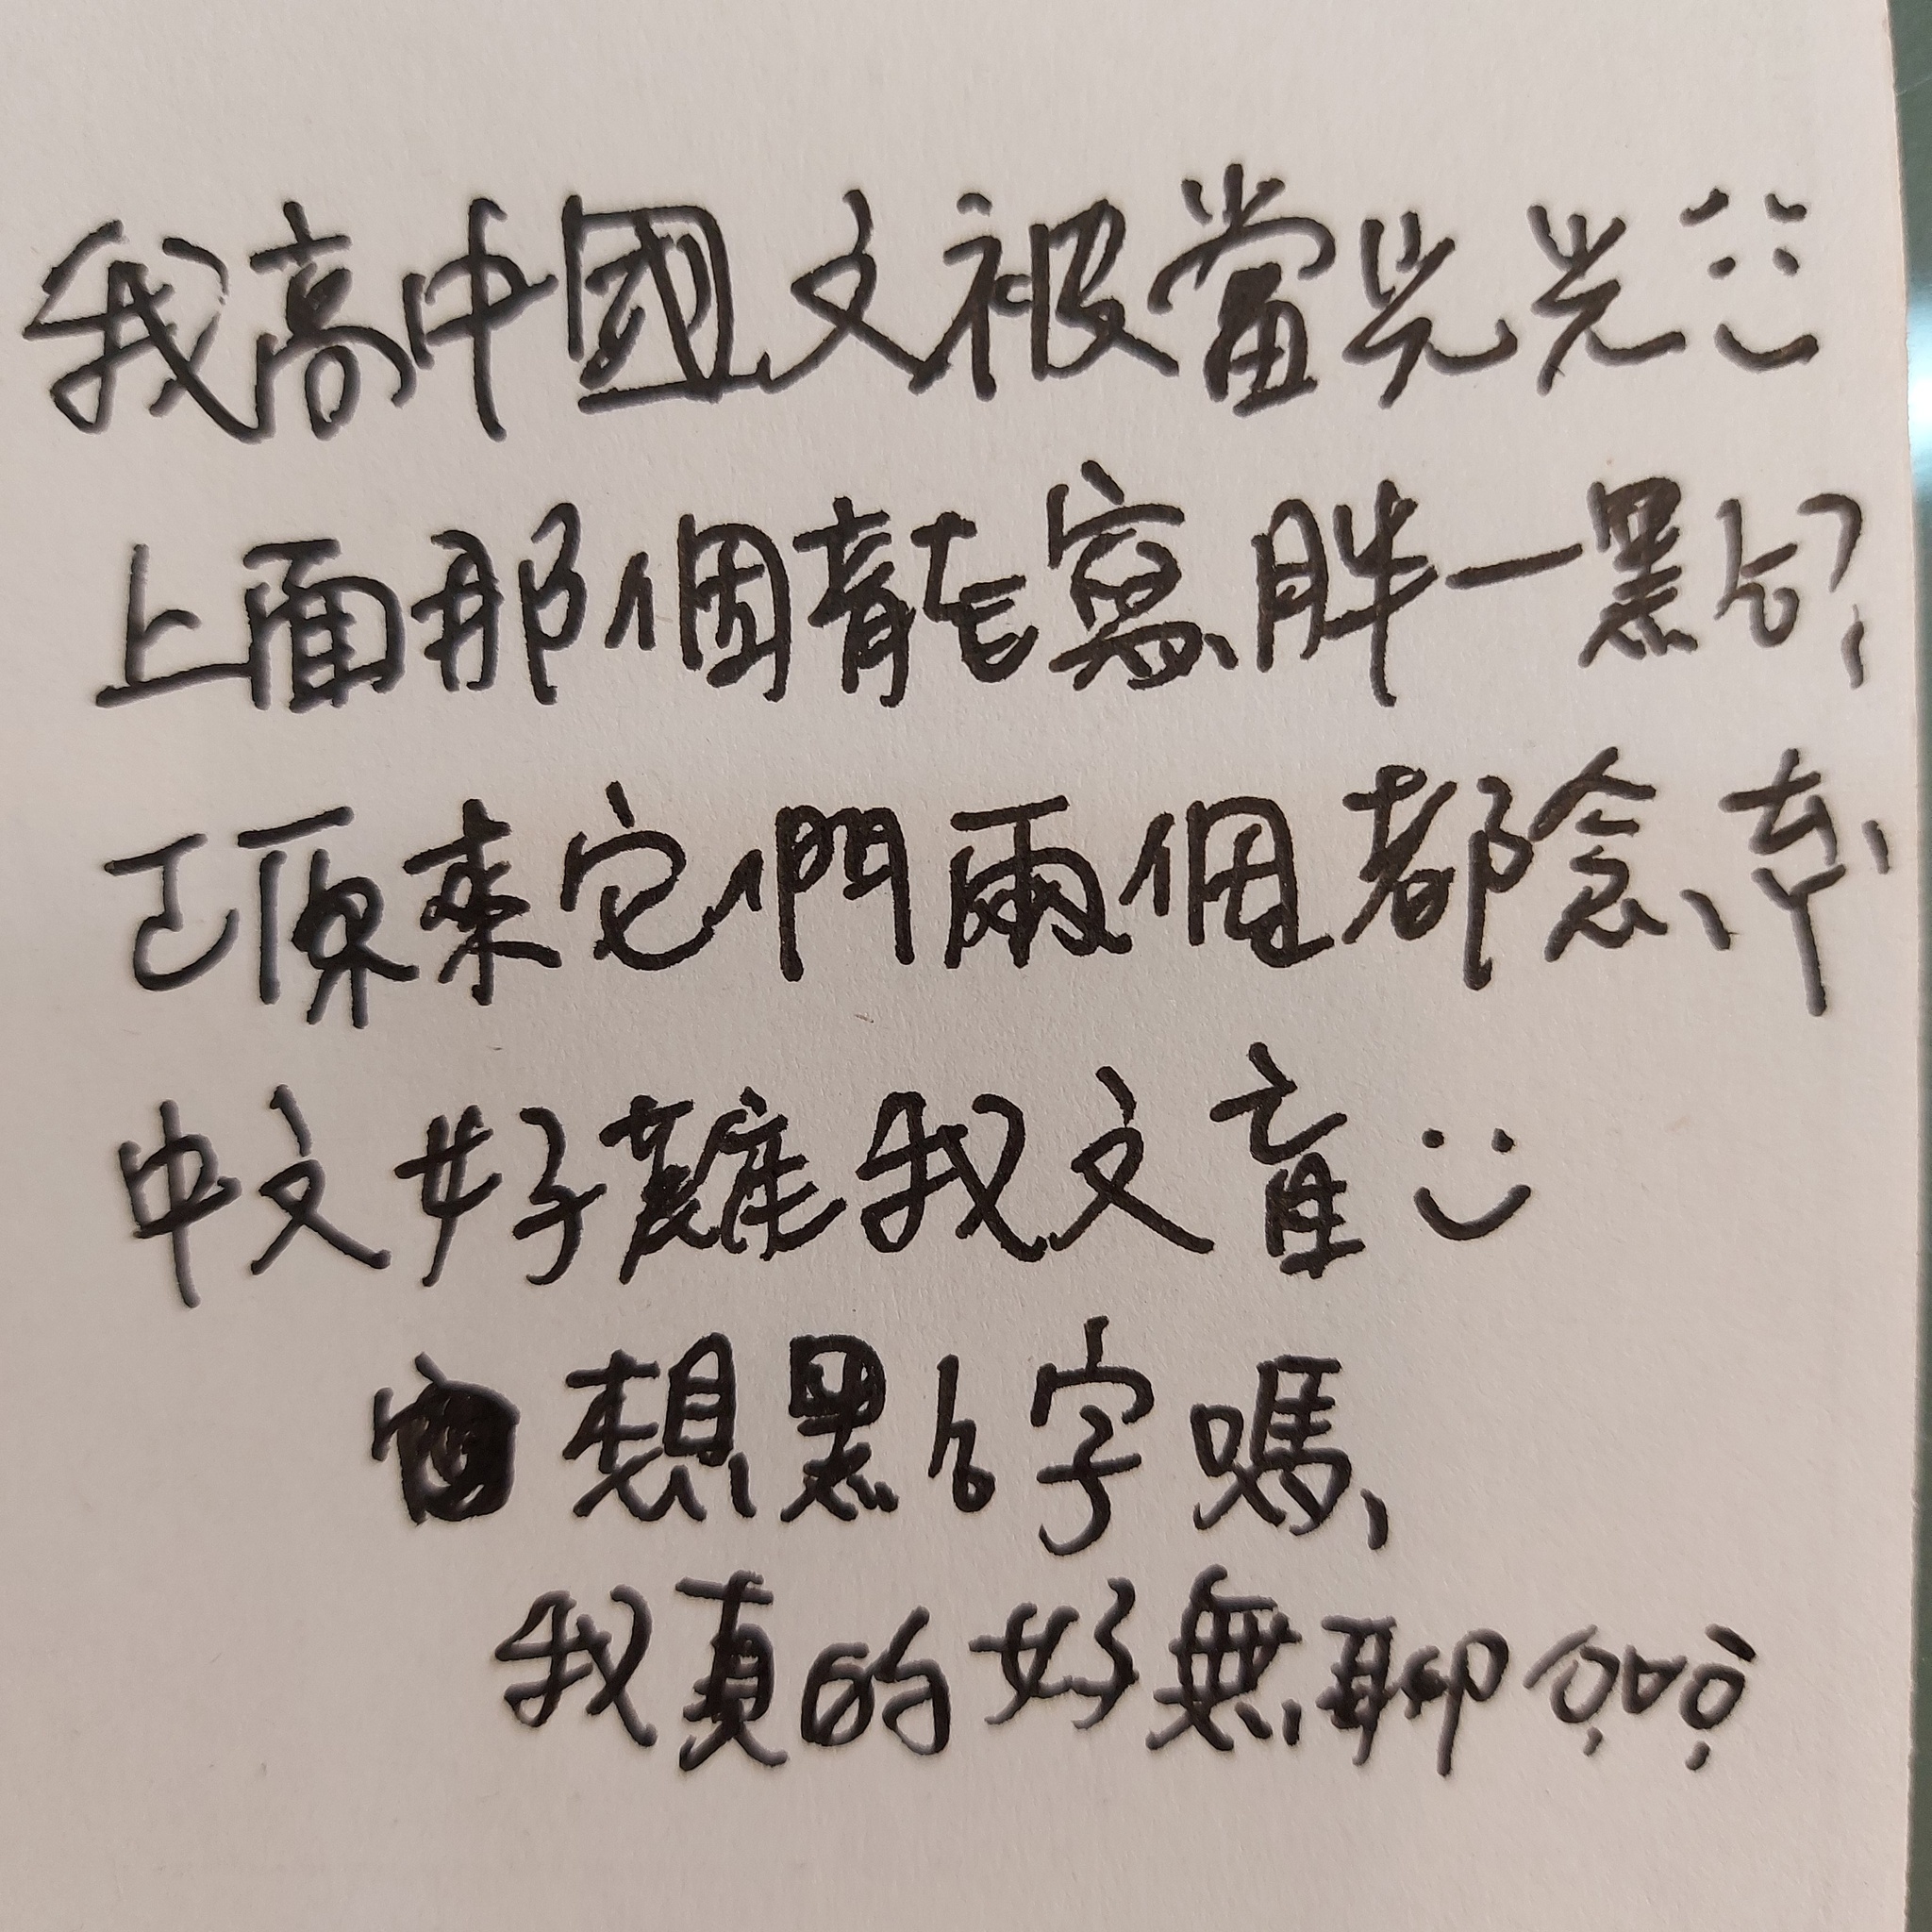 我高中國文被當光光
上面那個龍寫胖一點?
原來它們兩個都念、
中文好難我文盲:)
想點字嗎、
我真的好無聊